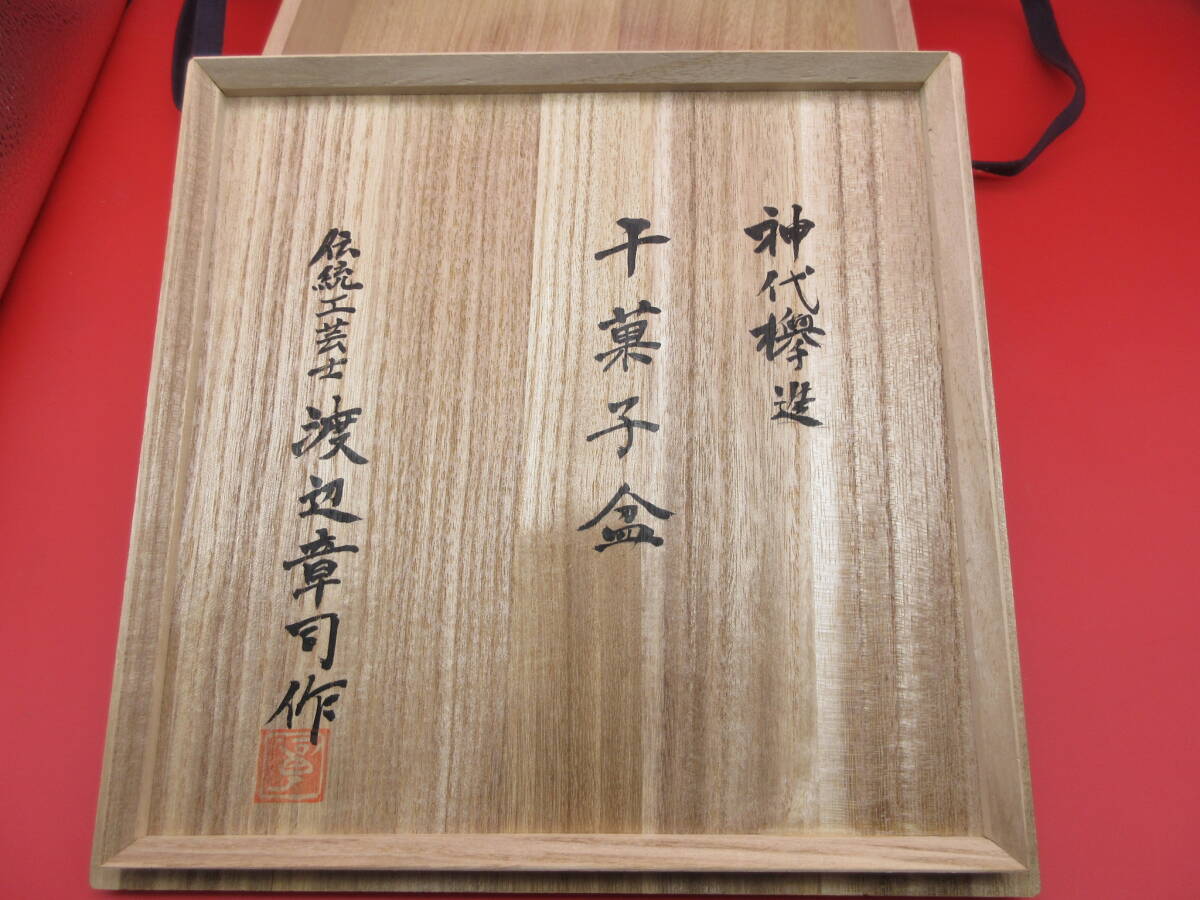 神代欅造
干菓子盆
伝統工芸士 渡辺章司作